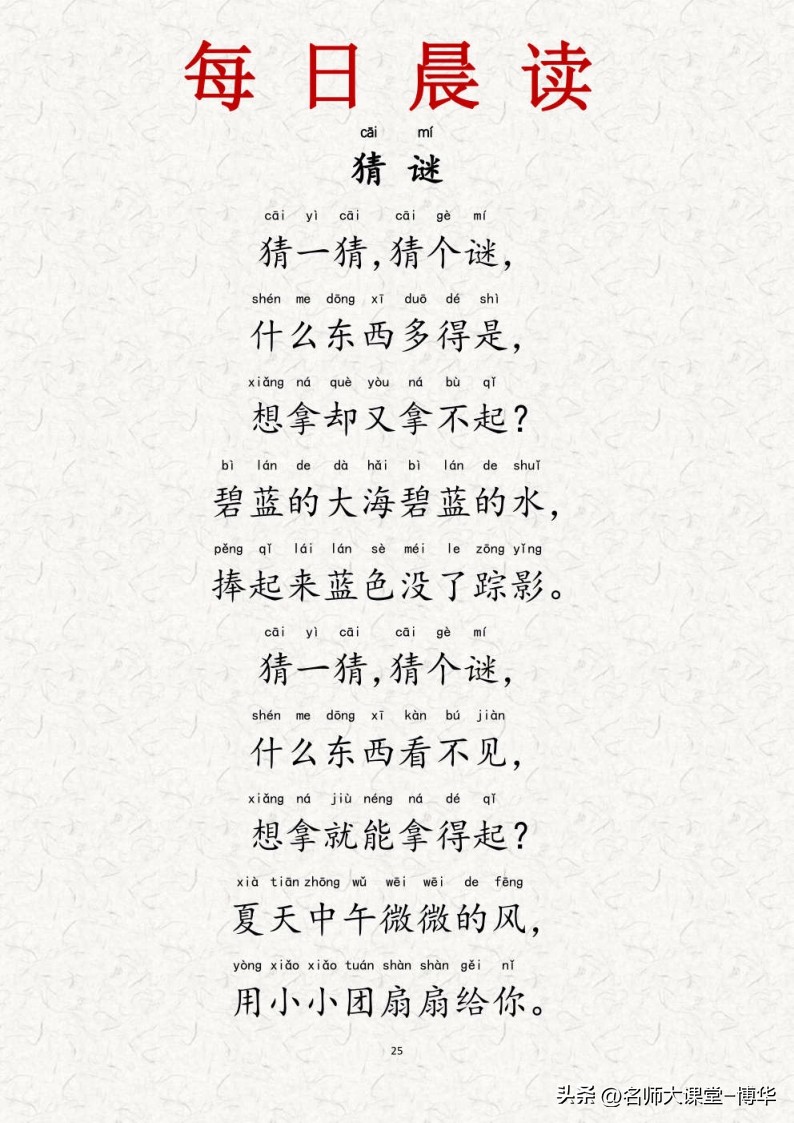 每日晨读
cāi mí
猜谜
cāi yì cāi cāi gè mí
猜一猜,猜个谜,
shén me dōng xī duō dé shì
什么东西多得是,
xiǎng ná què yòu ná bù qǐ
想拿却又拿不起?
bì lán de dà hǎi bì lán de shuǐ
碧蓝的大海碧蓝的水,
pěng qǐ lái lán sè méi le zōng yǐng
捧起来蓝色没了踪影。
cāi yì cāi cāi gè mí
猜一猜,猜个谜,
shén me dōng xī kàn bú jiàn
什么东西看不见,
xiǎng ná jiù néng ná dé qǐ
想拿就能拿得起?
xià tiān zhōng wǔ wēi wēi de fēng
夏天中午微微的风,
yòng xiǎo xiǎo tuán shàn shàn gěi nǐ
用小小团扇扇给你。
25
头条 @名师大课堂-博华